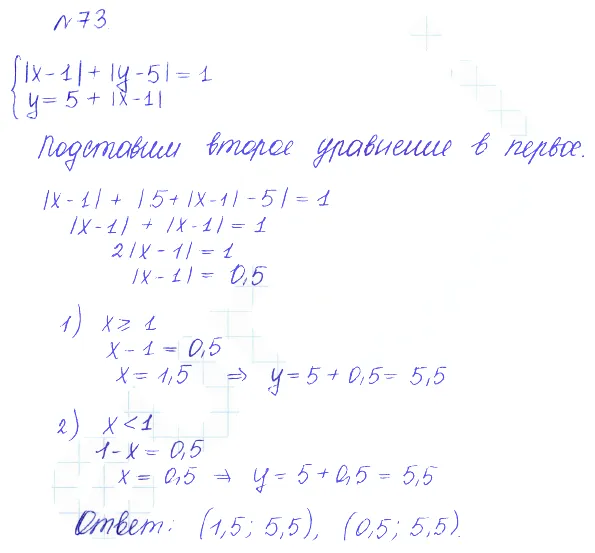 №73.
{|x-1| + |y-5| = 1
{y = 5 + |x-1|
Подставим второе уравнение в первое.
|x-1| + |5+|x-1|-5| = 1
|x-1| + |x-1| = 1
2|x-1| = 1
|x-1| = 0,5
1) x ⩾ 1
x - 1 = 0,5
x = 1,5 ⇒ y = 5 + 0,5 = 5,5
2) x < 1
1-x = 0,5
x = 0,5 ⇒ y = 5 + 0,5 = 5,5
Ответ: (1,5; 5,5), (0,5; 5,5).